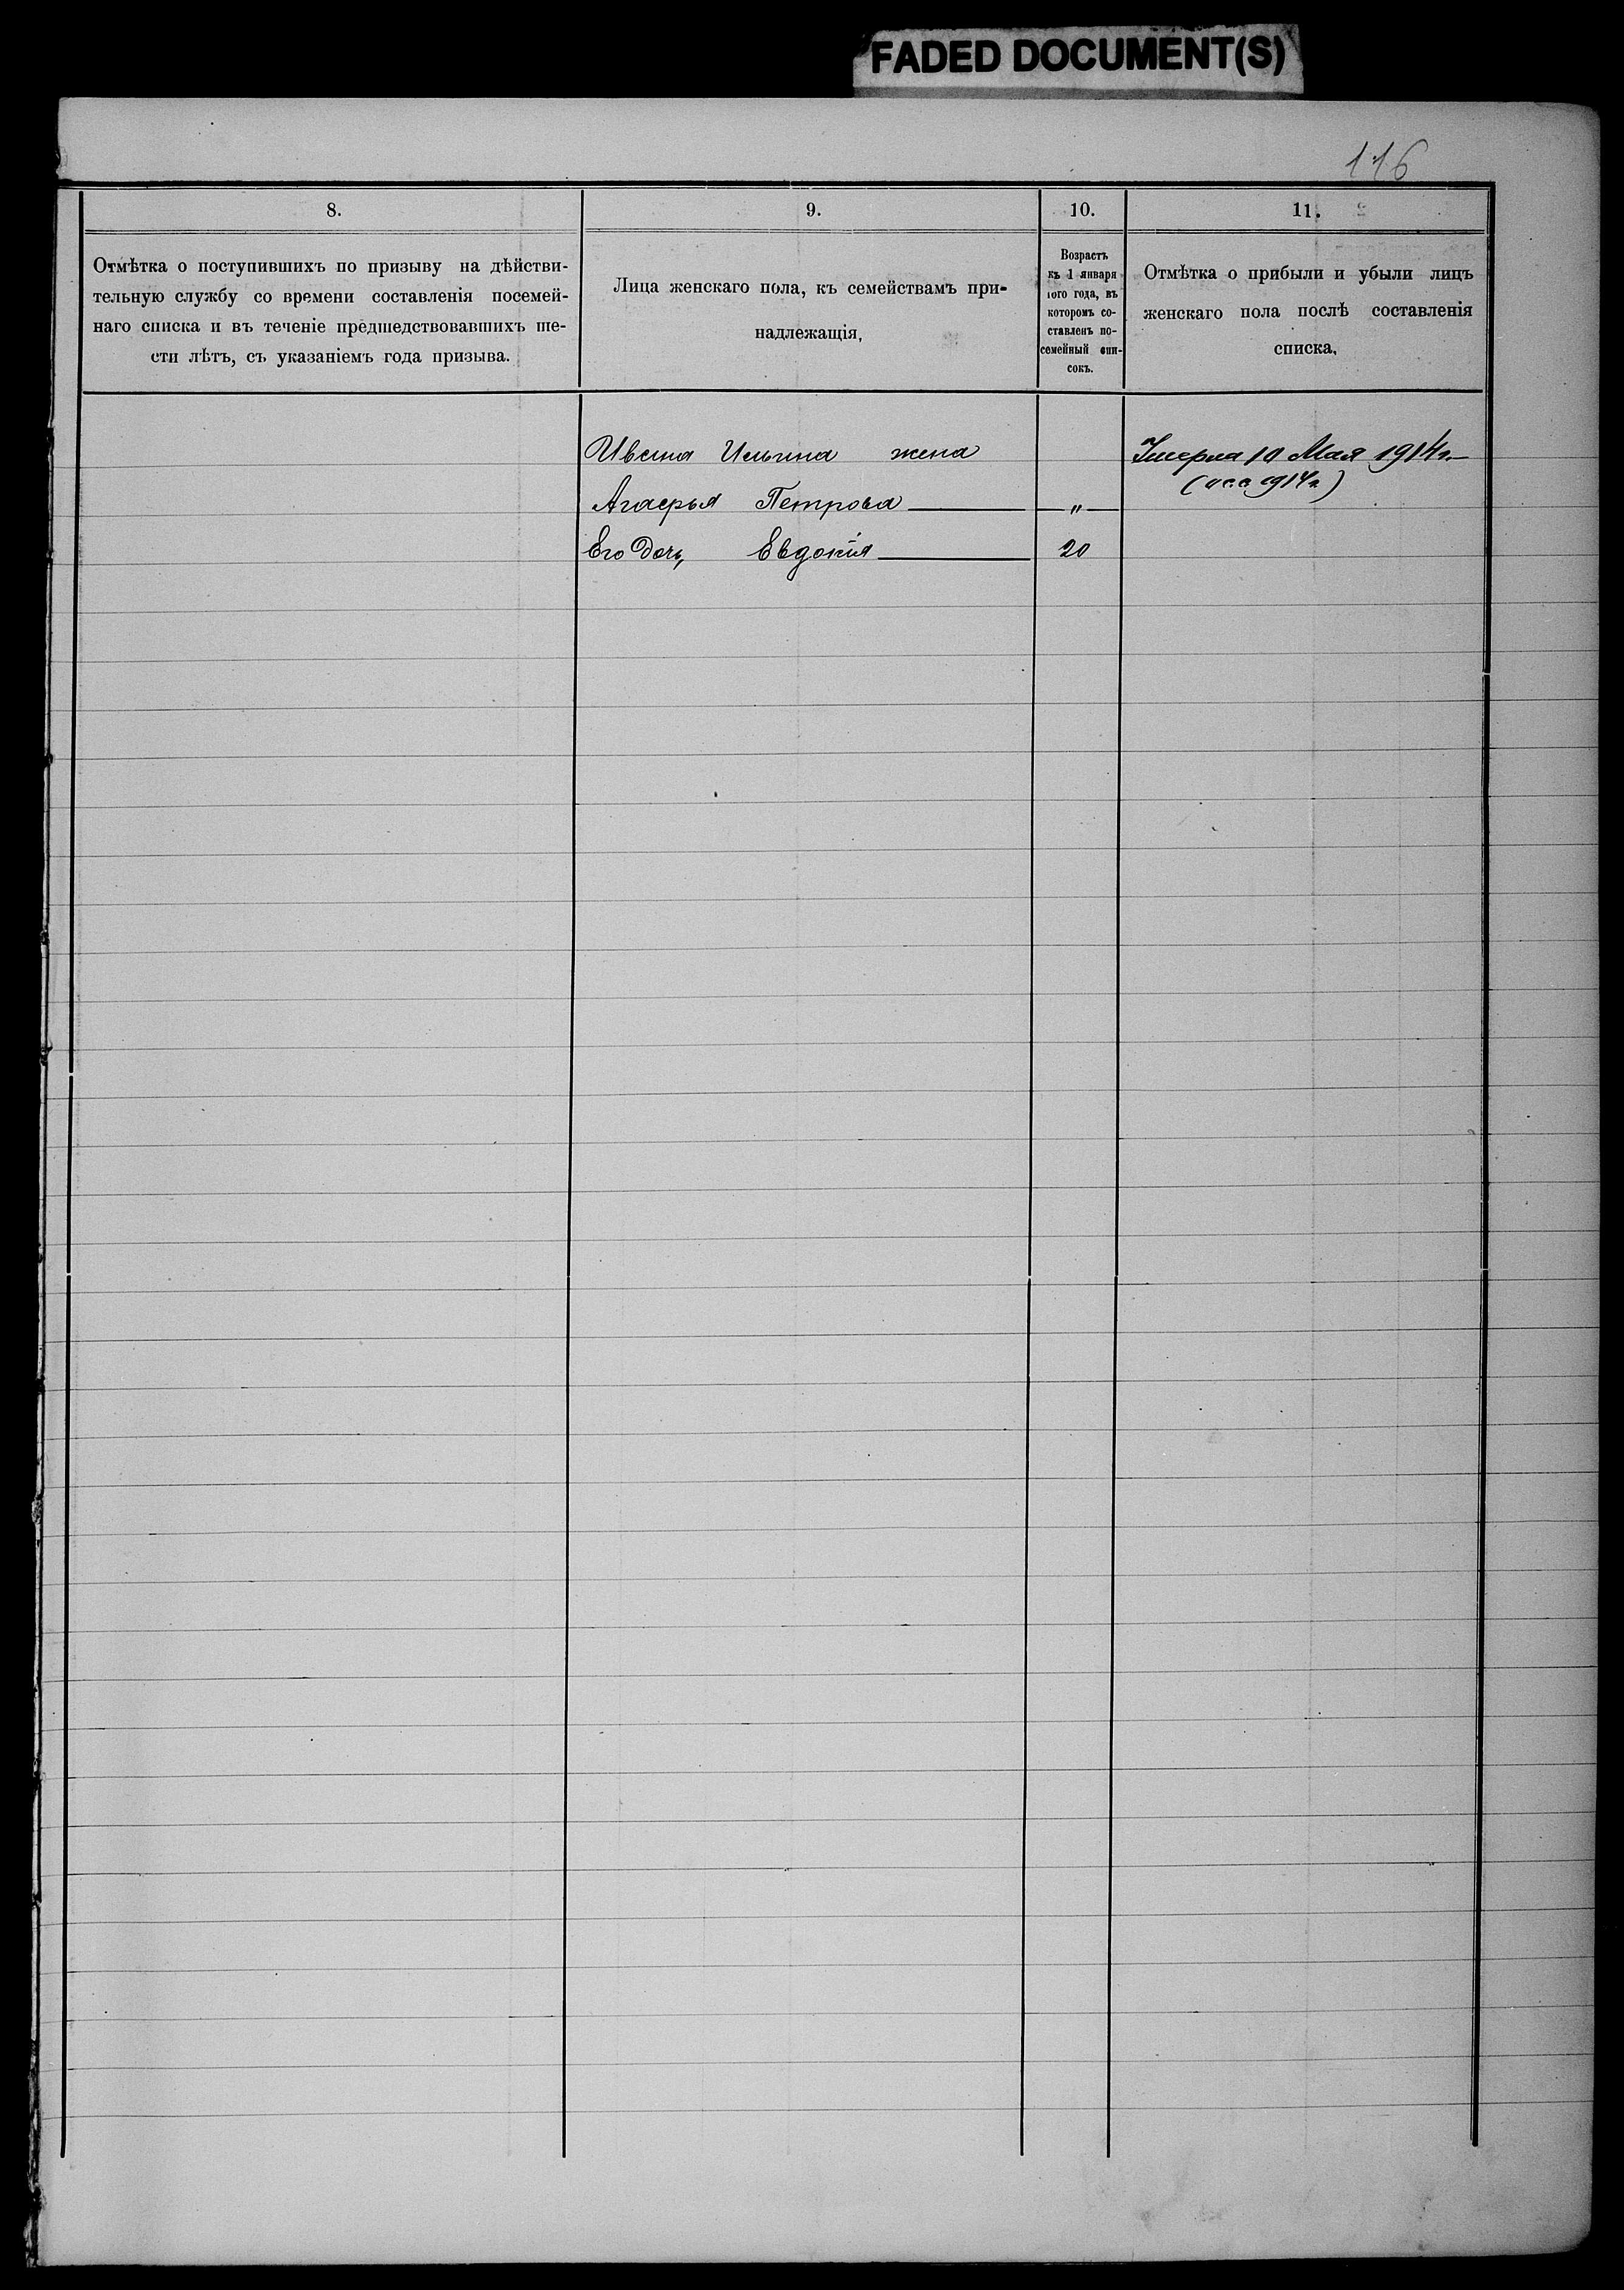 FADED DOCUMENT(S)
116
8.
9.
10.
11.
Отмѣтка о поступившихъ по призыву на дѣйстви-
тельную службу со времени составленія посемей-
наго списка и въ теченіе предшедствовавшихъ ше-
сти лѣтъ, съ указаніемъ года призыва.
Лица женскаго пола, къ семействамъ при-
надлежащія,
Возрастъ
къ 1 января
того года, въ
которомъ со-
ставленъ по-
семейный спи-
сокъ.
Отмѣтка о прибыли и убыли лицъ
женскаго пола послѣ составленія
списка,
Ивана Ильина жена
Умерла 10 Мая 1914 г.
1914 г.)
Агафья Петрова — „ —
Его Дочь, Евдокія — 20